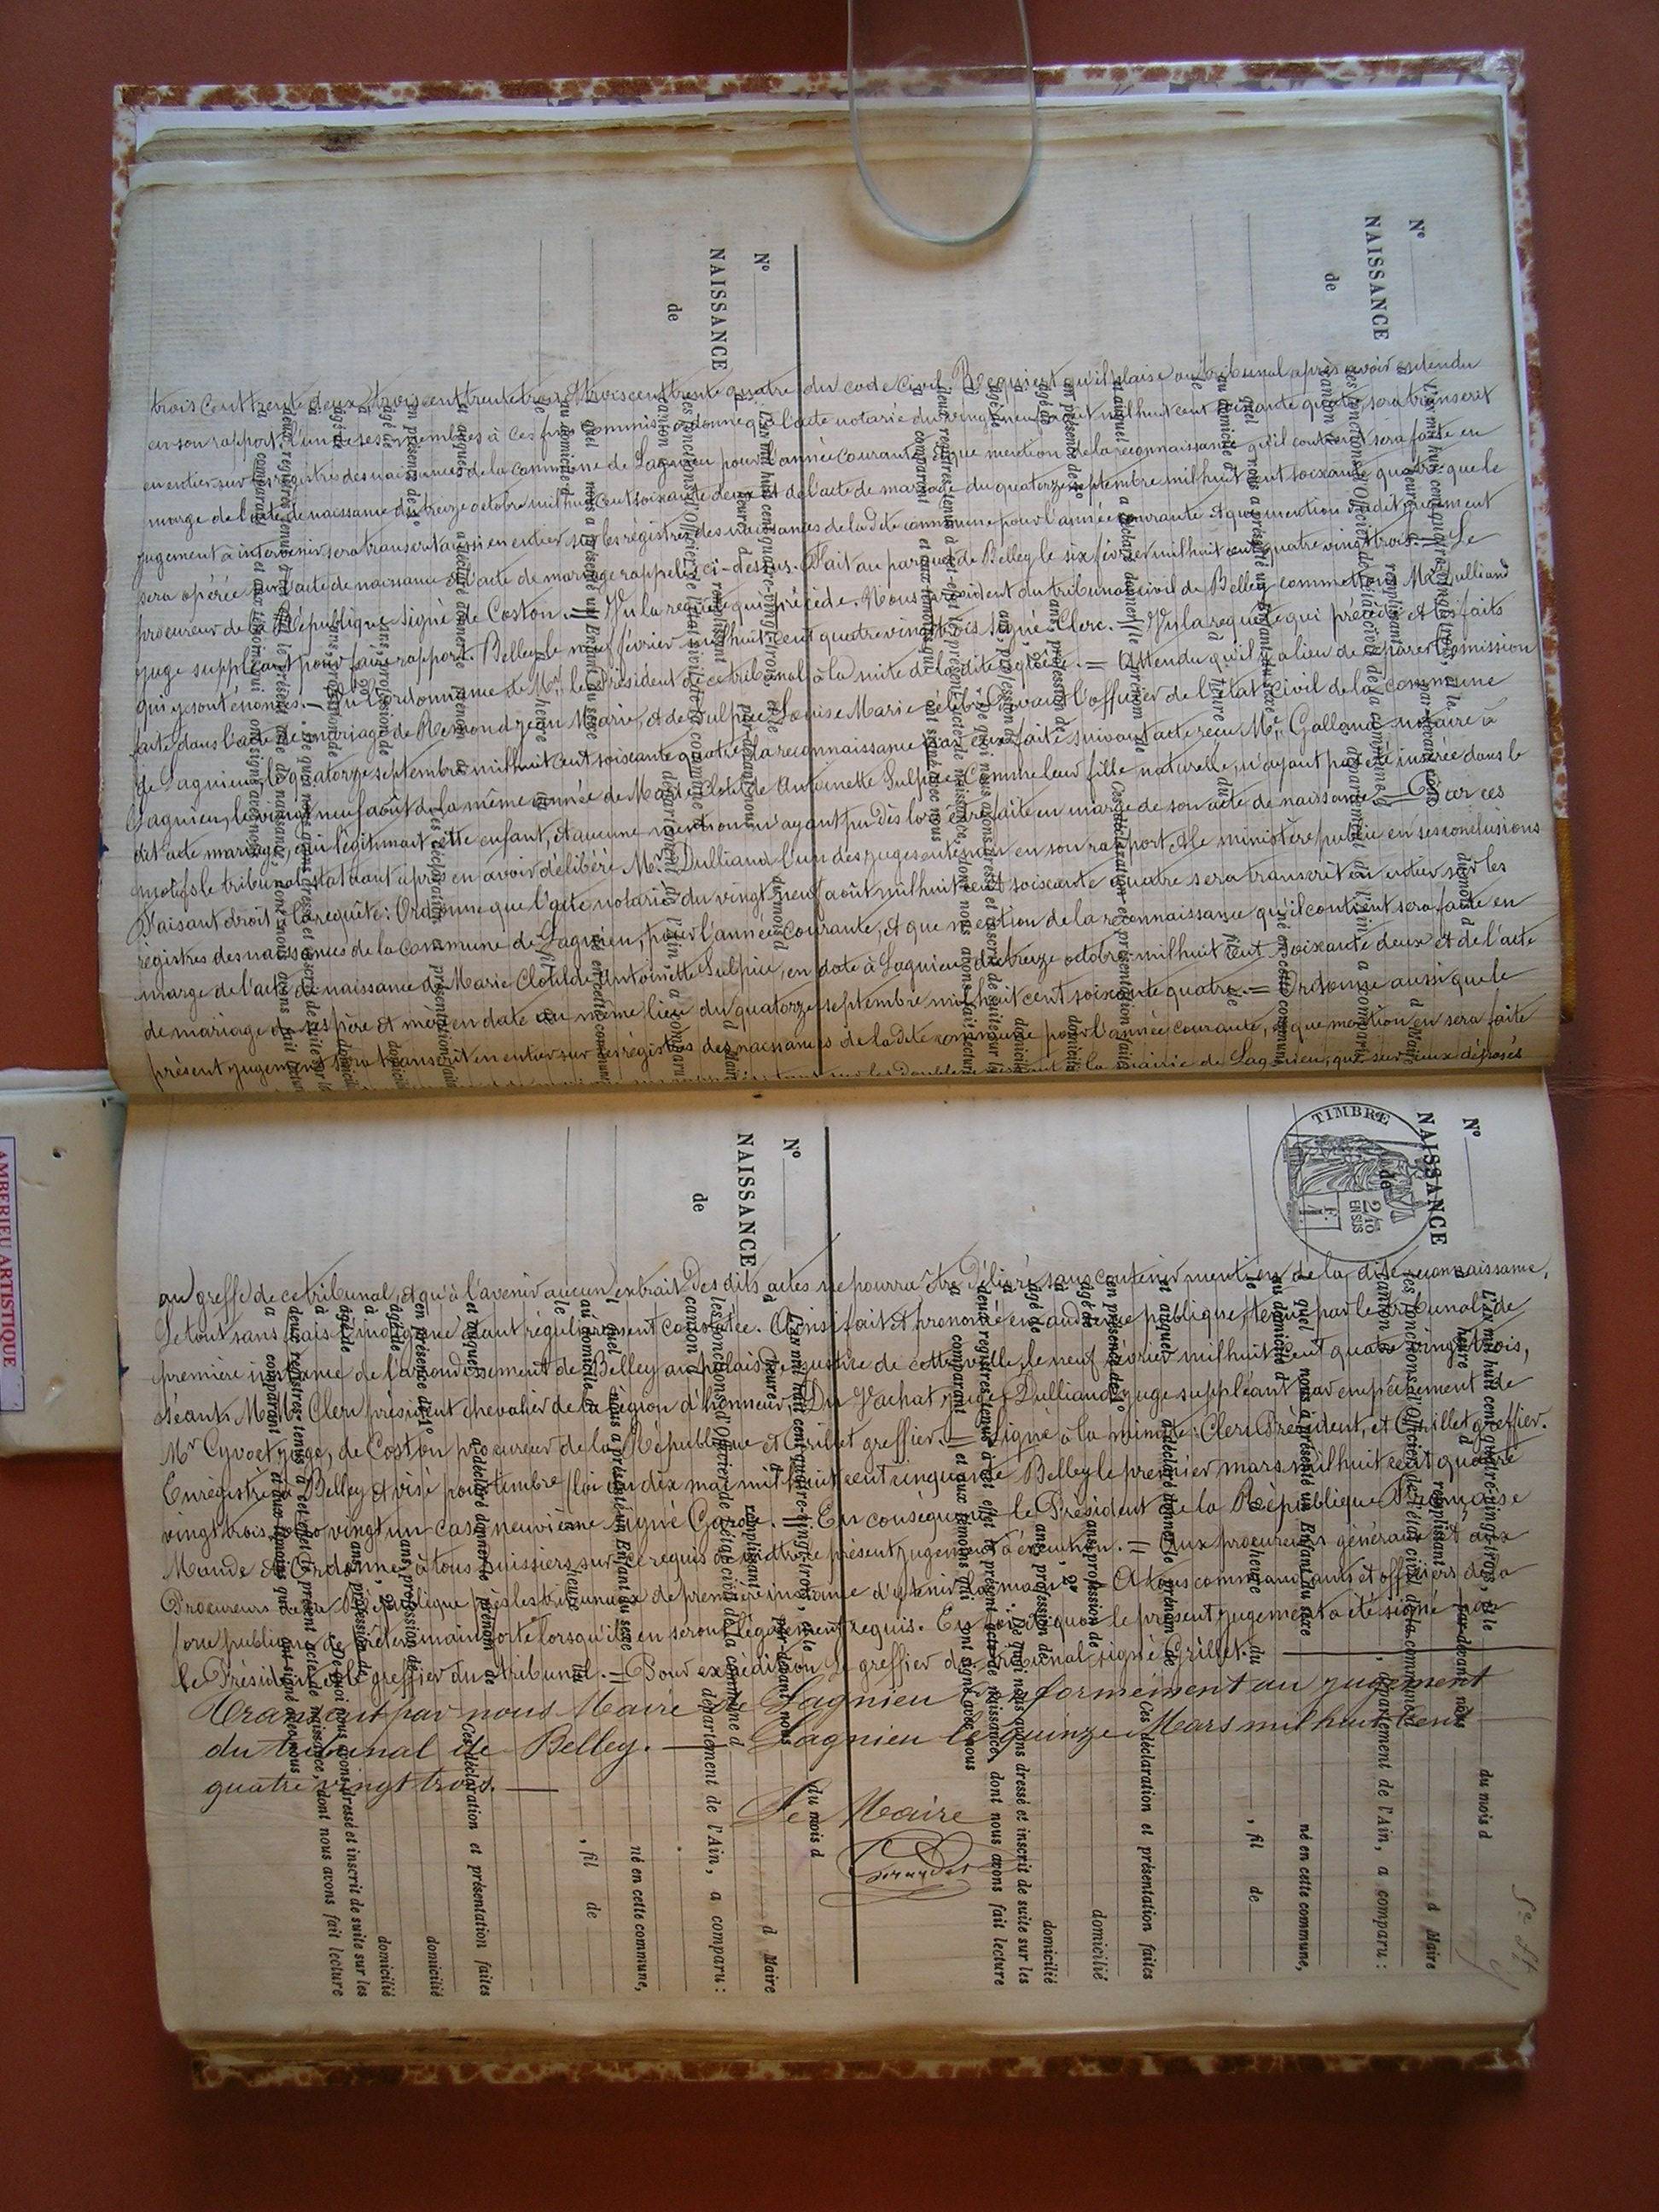 trois cent trente deux, trois cent trente trois et trois cent trente quatre du code civil. Requiert qu'il plaise au tribunal après avoir entendu
en son rapport l'un de ses membres à ces fins commis, ordonné que l'acte notarié du vingt neuf août mil huit cent soixante quatre, sera transcrit
en entier sur les registres des naissances de la commune de Lagnieu pour l'année courante, et que mention de la reconnaissance qu'il contient sera faite en
marge de l'acte de naissance du treize octobre mil huit cent soixante deux et de l'acte de mariage du quatorze septembre mil huit cent soixante quatre, que le
jugement à intervenir sera transcrit aussi en entier sur les régistres des naissances de la dite commune pour l'année courante et que mention du dit jugement
sera opérée sur l'acte de naissance et l'acte de mariage rappelés ci-dessus. Fait au parquet de Belley le six février mil huit cent quatre vingt trois. = Le
procureur de la République signé de Coston. = Vu la requête qui précède. Nous président du tribunal civil de Belley commettons Mr Dulliand
juge suppléant pour faire rapport. Belley le neuf février mil huit cent quatre vingt trois signé Clerc. = Vu la requête qui précède et les faits
qui y sont énoncés. Vu l'ordonnance de Mr le Président de ce tribunal à la suite de la dite requête. = Attendu qu'il y a lieu de réparer l'omission
faite dans l'acte de mariage de Remond Jean Marie, et de Sulpice Louise Marie célébré devant l'officier de l'état civil de la commune
de Lagnieu le quatorze septembre mil huit cent soixante quatre, la reconnaissance par eux faite suivant acte reçu Mr Galland notaire à
Lagnieu, le vingt neuf août de la même année de Marie Clotilde Antoinette Sulpice, comme leur fille naturelle, n'ayant pas été insérée dans le
dit acte mariage, qui légitimait cette enfant, et aucune mention n'ayant pu dès lors être faite en marge de son acte de naissance. = Par ces
motifs le tribunal statuant après en avoir délibéré Mr Dulliand l'un des juges entendu en son rapport et le ministère public en ses conclusions
Faisant droit la requête: Ordonne que l'acte notarié du vingt neuf août mil huit cent soixante quatre sera transcrit en entier sur les
régistres des naissances de la Commune de Lagnieu, pour l'année courante, et que mention de la reconnaissance qu'il contient sera faite en
marge de l'acte de naissance de Marie Clotilde Antoinette Sulpice, en date à Lagnieu du treize octobre mil huit cent soixante deux et de l'acte
de mariage de ses père et mère en date au même lieu du quatorze septembre mil huit cent soixante quatre. = Ordonne aussi que le
présent jugement sera transcrit en entier sur les régistres des naissances de la dite commune pour l'année courante, et que mention en sera faite
la mairie de Lagnieu, que sur ceux déposés
au greffe de ce tribunal, et qu'à l'avenir aucun extrait des dits actes ne pourra être délivré sans contenir mention de la dite reconnaissance,
Le tout sans frais, l'indigence étant régulièrement constatée. Ainsi fait et prononcé en audience publique, tenue par le tribunal de
première instance de l'arrondissement de Belley au palais de justice de cette ville, le neuf février mil huit cent quatre vingt trois,
séants M.M. Clerc président chevalier de la légion d'honneur, Du Vachat juge, Dulliand juge suppléant par empêchement de
Mr Cyvoct juge, de Coston procureur de la République et Grillet greffier. = Signé à la minute: Clerc Président, et Grillet greffier.
Enrégistré à Belley et visé pour timbre (loi du dix mai mil huit cent cinquante Belley le premier mars mil huit cent quatre
vingt trois, folio vingt un case neuvième signé Garde. = En conséquence le Président de la République Française
Mande et Ordonne, à tous huissiers sur ce requis de mettre le présent jugement à exécution. = Aux procureurs généraux et aux
Procureurs de la République près les tribunaux de première instance d'y tenir la main. = A tous commandants et officiers de la
force publique de prêter main forte lorsqu'ils en seront légalement requis. En foi de quoi le présent jugement a été signé par
le Président et le greffier du tribunal. = Pour expédition, le greffier du tribunal signé Grillet.
Transcrit par nous Maire de Lagnieu Conformément au jugement
du tribunal de Belley. — Lagnieu le quinze Mars mil huit Cent
quatre vingt trois. —
Le Maire
N°
NAISSANCE
de
N°
NAISSANCE
de
N°
NAISSANCE
de
N°
NAISSANCE
de
TIMBRE
2/10
EN SUS
L'an mil huit cent quatre-vingt-trois, et le du mois d
heure d par-devant nous
remplissant d Maire
les fonctions d'Officier de l'état civil de la commune d
canton d , département de l'Ain, a comparu :
quel nous a présenté un Enfant du sexe né en cette commune,
au domicile d
le heure du , fil de
et auquel a déclaré donner le prénom de
Ces déclaration et présentation faites
en présence de 1°
âgé de ans, profession de domicilié
à , 2°
âgé de ans, profession de domicilié
à . De quoi nous avons dressé et inscrit de suite sur les
deux registres tenus à cet effet le présent acte de naissance, dont nous avons fait lecture
a comparant et aux témoins qui ont signé avec nous
AMBERIEU ARTISTIQUE